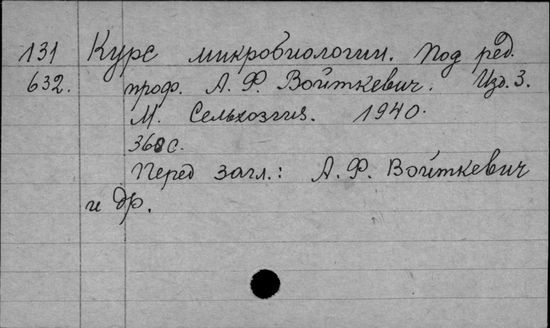 131 Курс микробиологии. Под ред.
632. проф. А. Ф. Войткевич. Изд. 3.
М. Сельхозгиз. 1940.
368 с.
Перед загл.: А. Ф. Войткевич
и др.